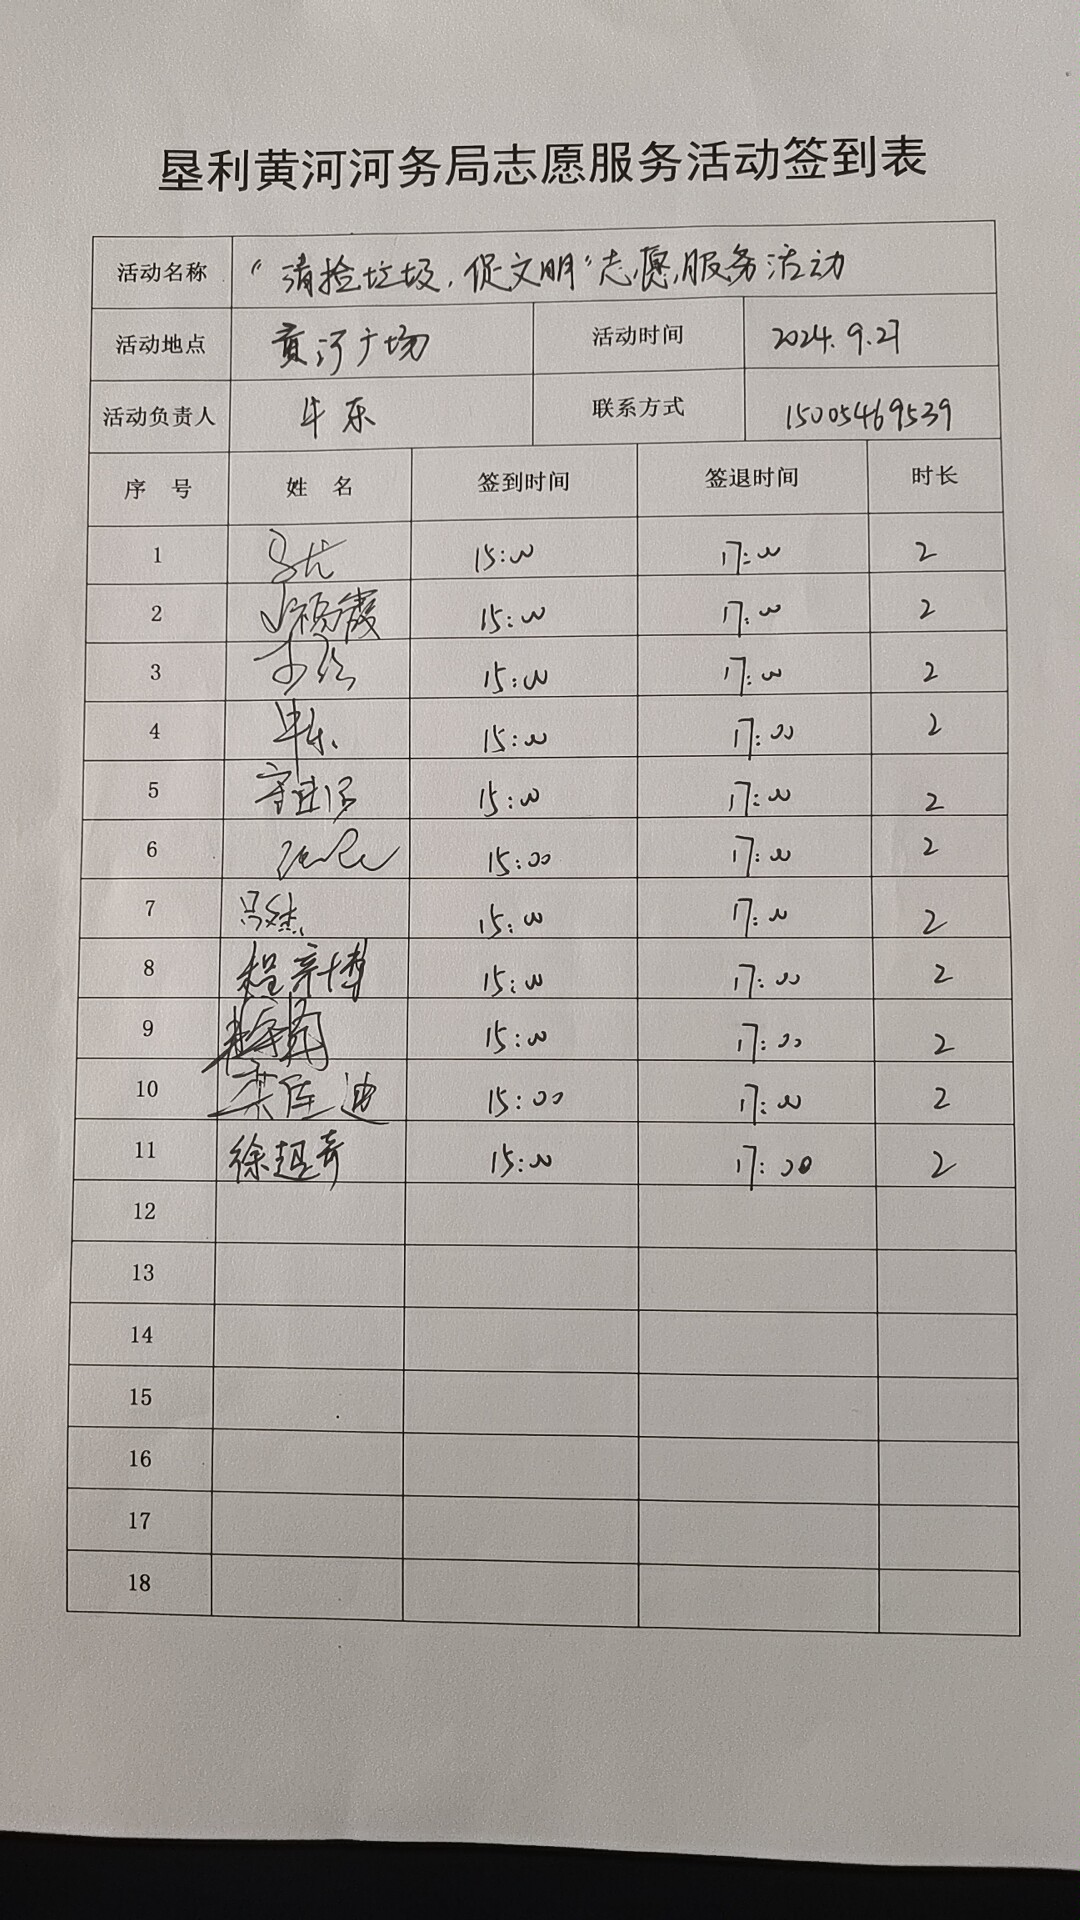 垦利黄河河务局志愿服务活动签到表
活动名称 “清捡垃圾,促文明”志愿服务活动
活动地点 黄河广场 活动时间 2024.9.27
活动负责人 牛东 联系方式 15005469539
序号 姓名 签到时间 签退时间 时长
1 15:00 17:00 2
2 15:00 17:00 2
3 15:00 17:00 2
4 牛东 15:00 17:00 2
5 15:00 17:00 2
6 15:00 17:00 2
7 15:00 17:00 2
8 程新博 15:00 17:00 2
9 15:00 17:00 2
10 15:00 17:00 2
11 徐超奇 15:00 17:00 2
12
13
14
15
16
17
18